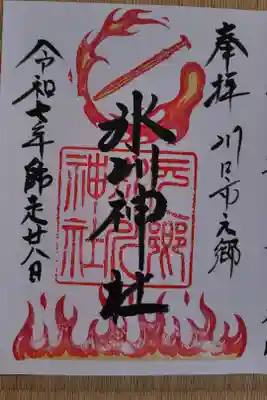 奉拝
川口市元郷
氷川神社
元郷氷川神社
令和七年師走廿八日